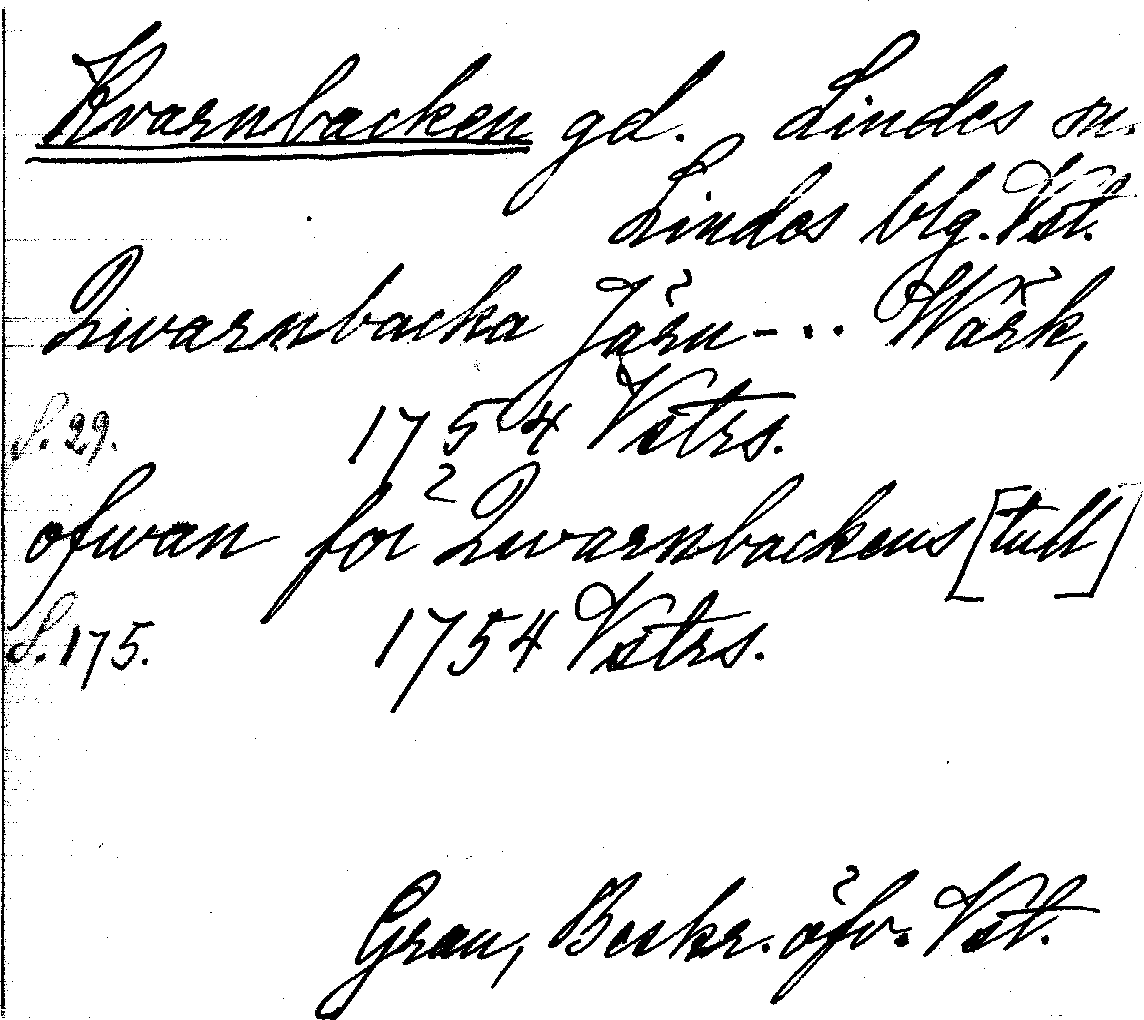 Kvarnbacken gd. Lindes sn.
Lindes blg. Vst.
Qwarnbacka Järn-.. Wärk,
S. 29. 1754 Vstrs.
ofwan för Qwarnbackens [tull]
S. 175. 1754 Vstrs.
Grau, Beskr. öfv. Vst.